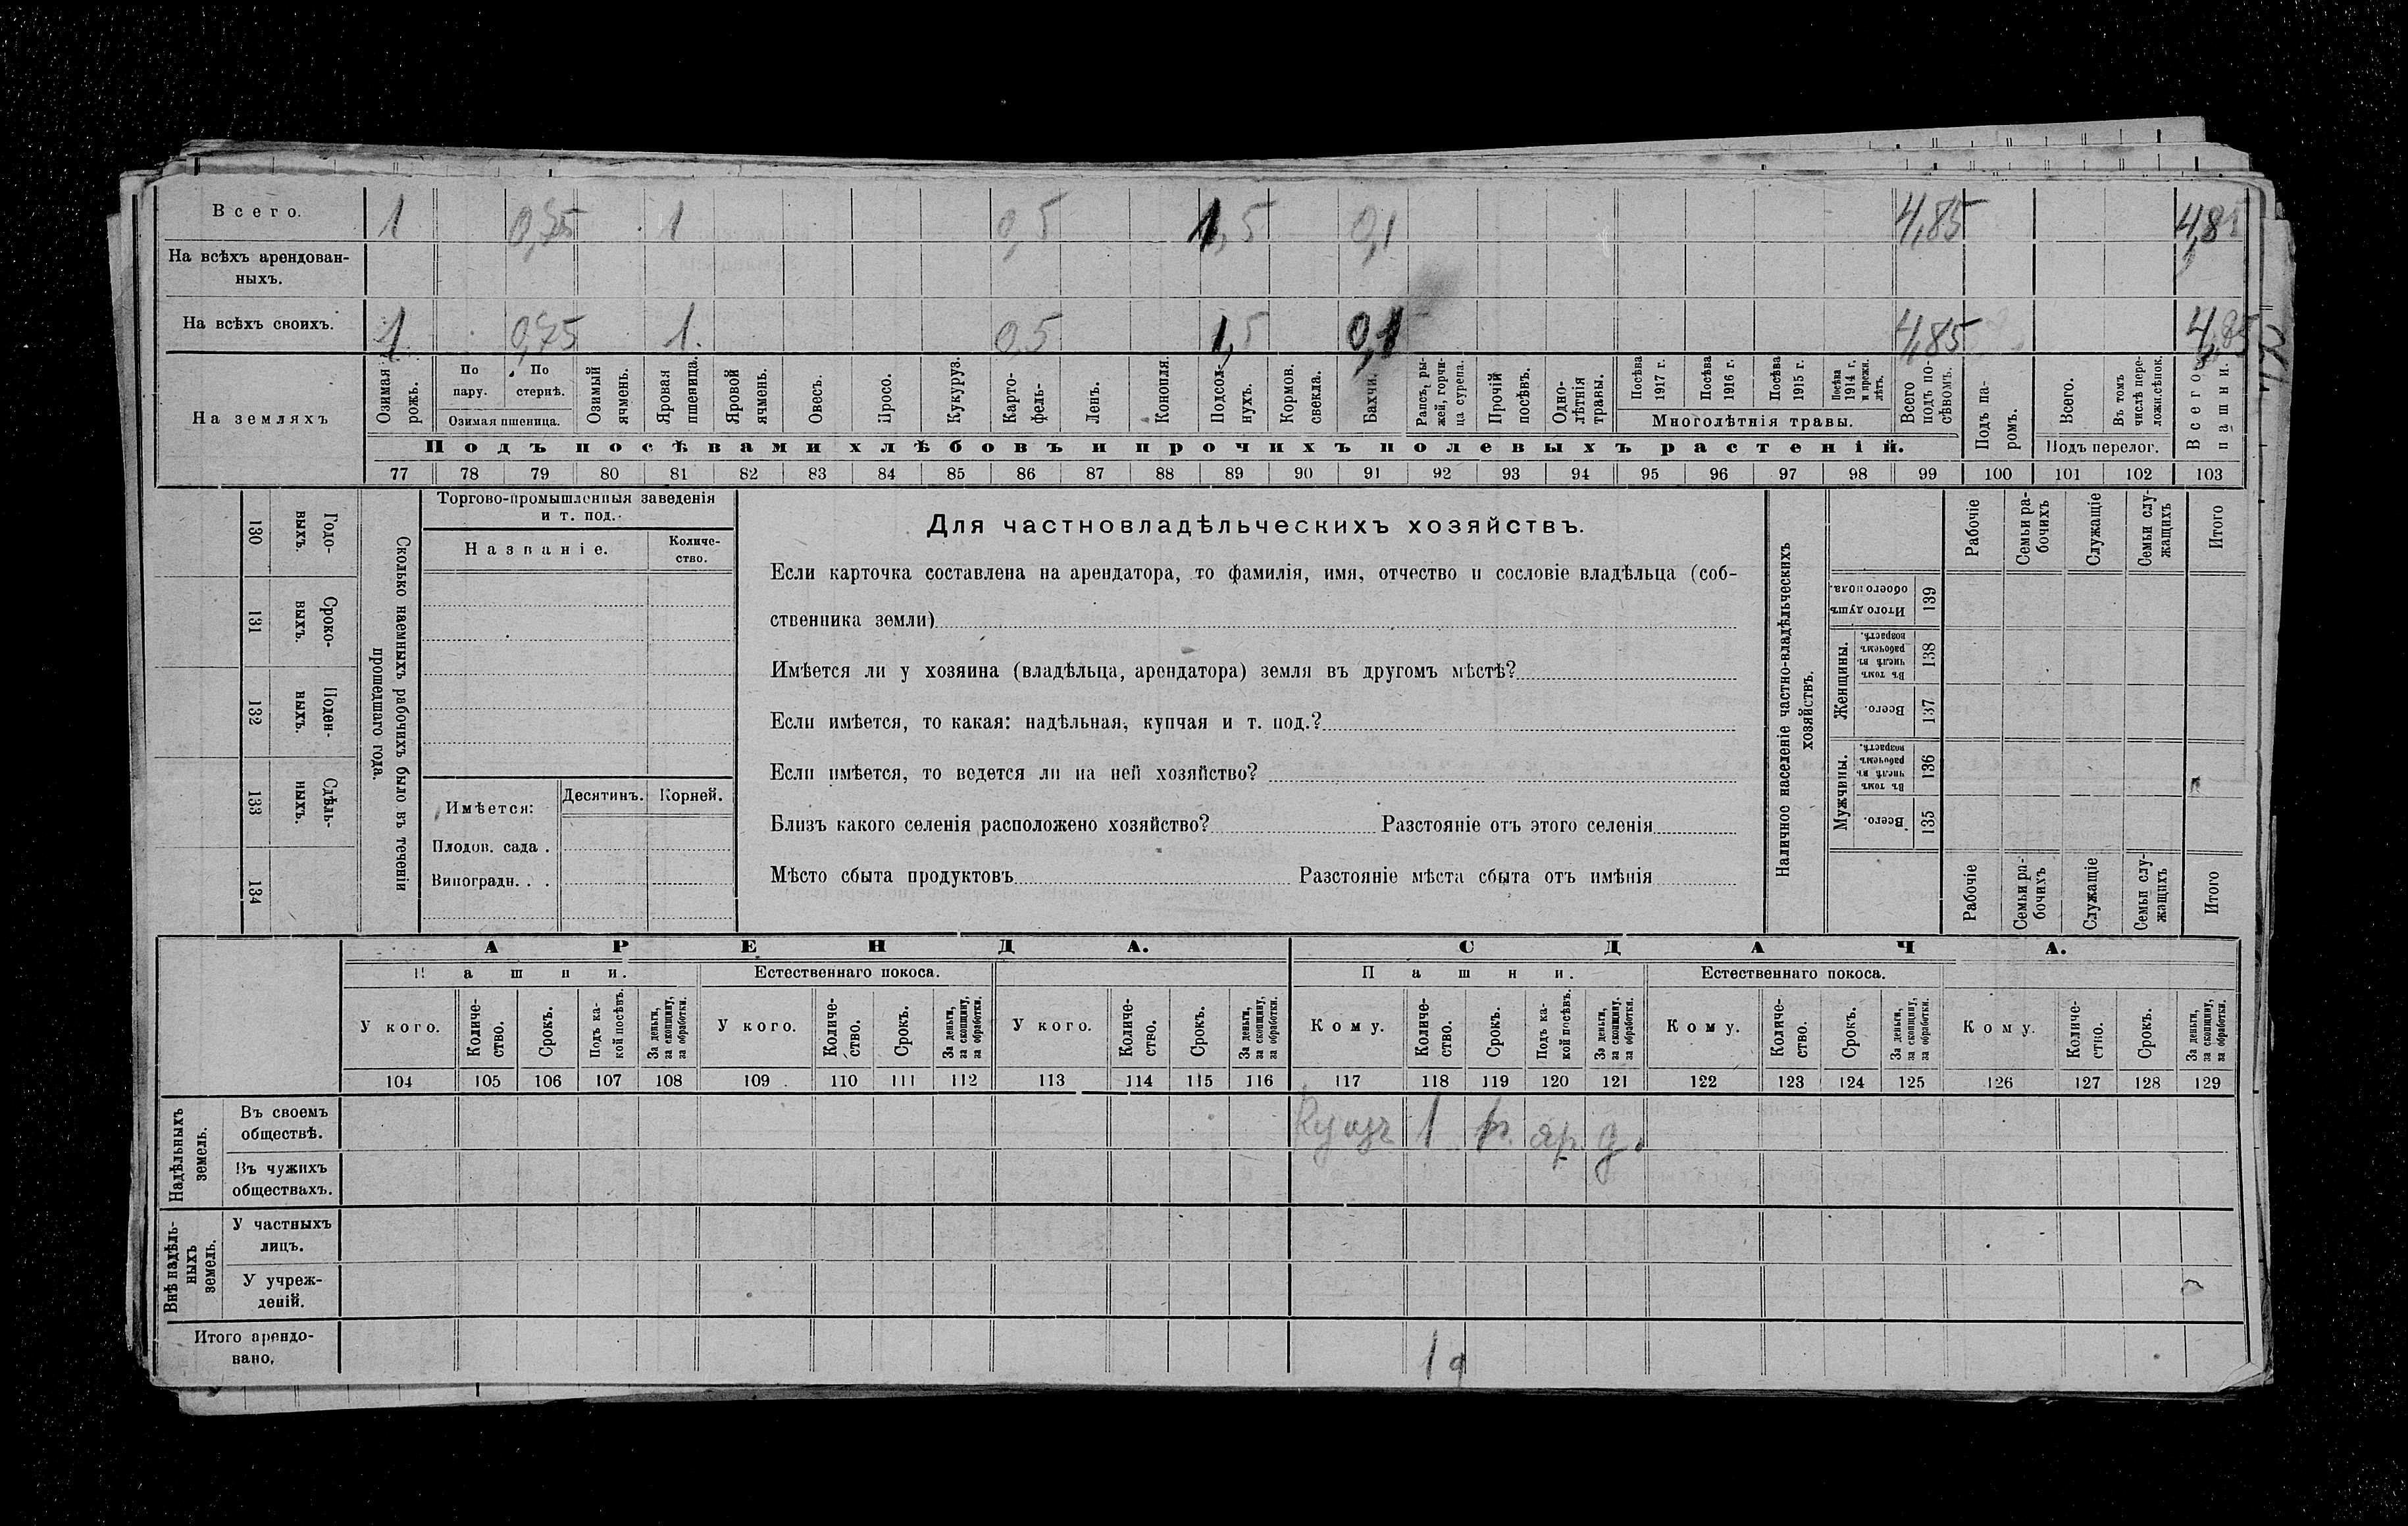 Всего. 1 0,75 1 0,5 1,5 0,1 4,85 4,85
На всѣхъ арендован-
ныхъ.
На всѣхъ своихъ. 1 0,75 1. 0,5 1,5 0,1 4,85 4,85
На земляхъ
Озимая рожь.
По пару.
По стернѣ.
Озимая пшеница.
Озимый ячмень.
Яровая пшеница.
Яровой ячмень.
Овесъ.
Просо.
Кукуруз.
Карто-
фель-
Ленъ.
Конопля.
Подсол-
нухъ.
Кормов. свекла.
Бахчи.
Рапсъ, ры-
жей, горчи-
ца сурепа.
Прочій посѣвъ.
Одно-
лѣтнія травы.
Посѣва 1917 г.
Посѣва 1916 г.
Посѣва 1915 г.
Посѣва 1914 г. и прежн. лѣтъ.
Многолѣтнія травы.
Всего подъ по-
сѣвомъ.
Подъ па-
ромъ.
Всего.
Въ томъ числѣ пере-
ложн. сѣнок.
Подъ перелог.
Всего пашни.
Подъ посѣвами хлѣбовъ и прочихъ полевыхъ растеній.
77 78 79 80 81 82 83 84 85 86 87 88 89 90 91 92 93 94 95 96 97 98 99 100 101 102 103
130 131 132 133 134
Годо-
выхъ.
Сроко-
выхъ.
Поден-
ныхъ.
Сдѣль-
ныхъ.
Сколько наемныхъ рабочихъ было въ теченіи
прошедшаго года.
Торгово-промышленныя заведенія
и т. под.
Названіе.
Количе-
ство.
Имѣется:
Десятинъ. Корней.
Плодов. сада .
Виноградн. . .
Для частновладѣльческихъ хозяйствъ.
Если карточка составлена на арендатора, то фамилія, имя, отчество и сословіе владѣльца (соб-
ственника земли)
Имѣется ли у хозяина (владѣльца, арендатора) земля въ другомъ мѣстѣ?
Если имѣется, то какая: надѣльная, купчая и т. под.?
Если имѣется, то ведется ли на ней хозяйство?
Близъ какого селенія расположено хозяйство? Разстояніе отъ этого селенія
Мѣсто сбыта продуктовъ Разстояніе мѣста сбыта отъ имѣнія
Наличное населеніе частно-владѣльческихъ
хозяйствъ.
Рабочіе
Семьи ра-
бочихъ
Служащіе
Семьи слу-
жащихъ
Итого
Итого душъ обоего пола. 139
Женщины.
Въ томъ числѣ въ рабочемъ возрастѣ. 138
Всего. 137
Мужчины.
Въ томъ числѣ въ рабочемъ возрастѣ. 136
Всего. 135
Рабочіе
Семьи ра-
бочихъ
Служащіе
Семьи слу-
жащихъ
Итого
АРЕНДА. СДАЧА.
Пашни. Естественнаго покоса. Пашни. Естественнаго покоса.
У кого.
Количе-
ство.
Срокъ.
Подъ ка-
кой посѣвъ.
За деньги,
за скопщину,
за обработки.
У кого.
Количе-
ство.
Срокъ.
За деньги,
за скопщину,
за обработки.
У кого.
Количе-
ство.
Срокъ.
За деньги,
за скопщину,
за обработки.
Кому.
Количе-
ство.
Срокъ.
Подъ ка-
кой посѣвъ.
За деньги,
за скопщину,
за обработки.
Кому.
Количе-
ство.
Срокъ.
За деньги,
за скопщину,
за обработки.
Кому.
Количе-
ство.
Срокъ.
За деньги,
за скопщину,
за обработки.
104 105 106 107 108 109 110 111 112 113 114 115 116 117 118 119 120 121 122 123 124 125 126 127 128 129
Надѣльныхъ
земель.
Въ своемъ
обществѣ.
1 яр. д.
Въ чужихъ
обществахъ.
Внѣ надѣль-
ныхъ
земель.
У частныхъ
лицъ.
У учреж-
деній.
Итого арендо-
вано.
1